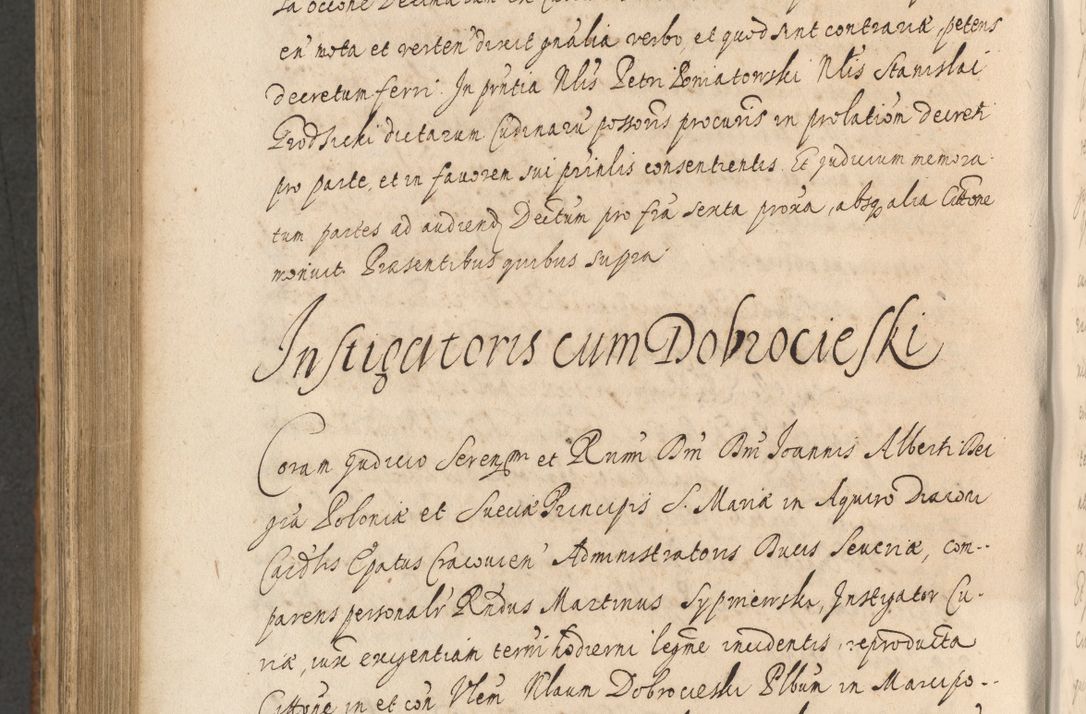 en' mota et verten' dixit gnalia verbo, et quod sint contraria, petens
decretum ferri. In pntia Nlis Petri Poniatowski Nlis Stanislai
dictarum possoris procuris in prolation decreti
pro parte, et in favorem sui prinlis consentientis. Et judicium memora
tum partes ad audiend Dectum pro fra sexta proxa, absq alia Cittone
monuit. Præsentibus quibus supra
Instigatoris cum Dobrocieski
Coram judicio Serenmi et Rmi Dni Dni Joannis Alberti Dei
gra Poloniæ et Sueciæ Principis S. Mariæ in Aquiro Diaconi
Cardlis Epatus Cracovien' Administratoris Ducis Severiæ, com--
parens personalr Rndus Martinus Sypniewski, Instigator Cu-
riæ, iuxe exigentiam termi hodierni legme incidentis, reproducta
Cittone in et con Nlem Dobrocieski Plbum in Marcipo--